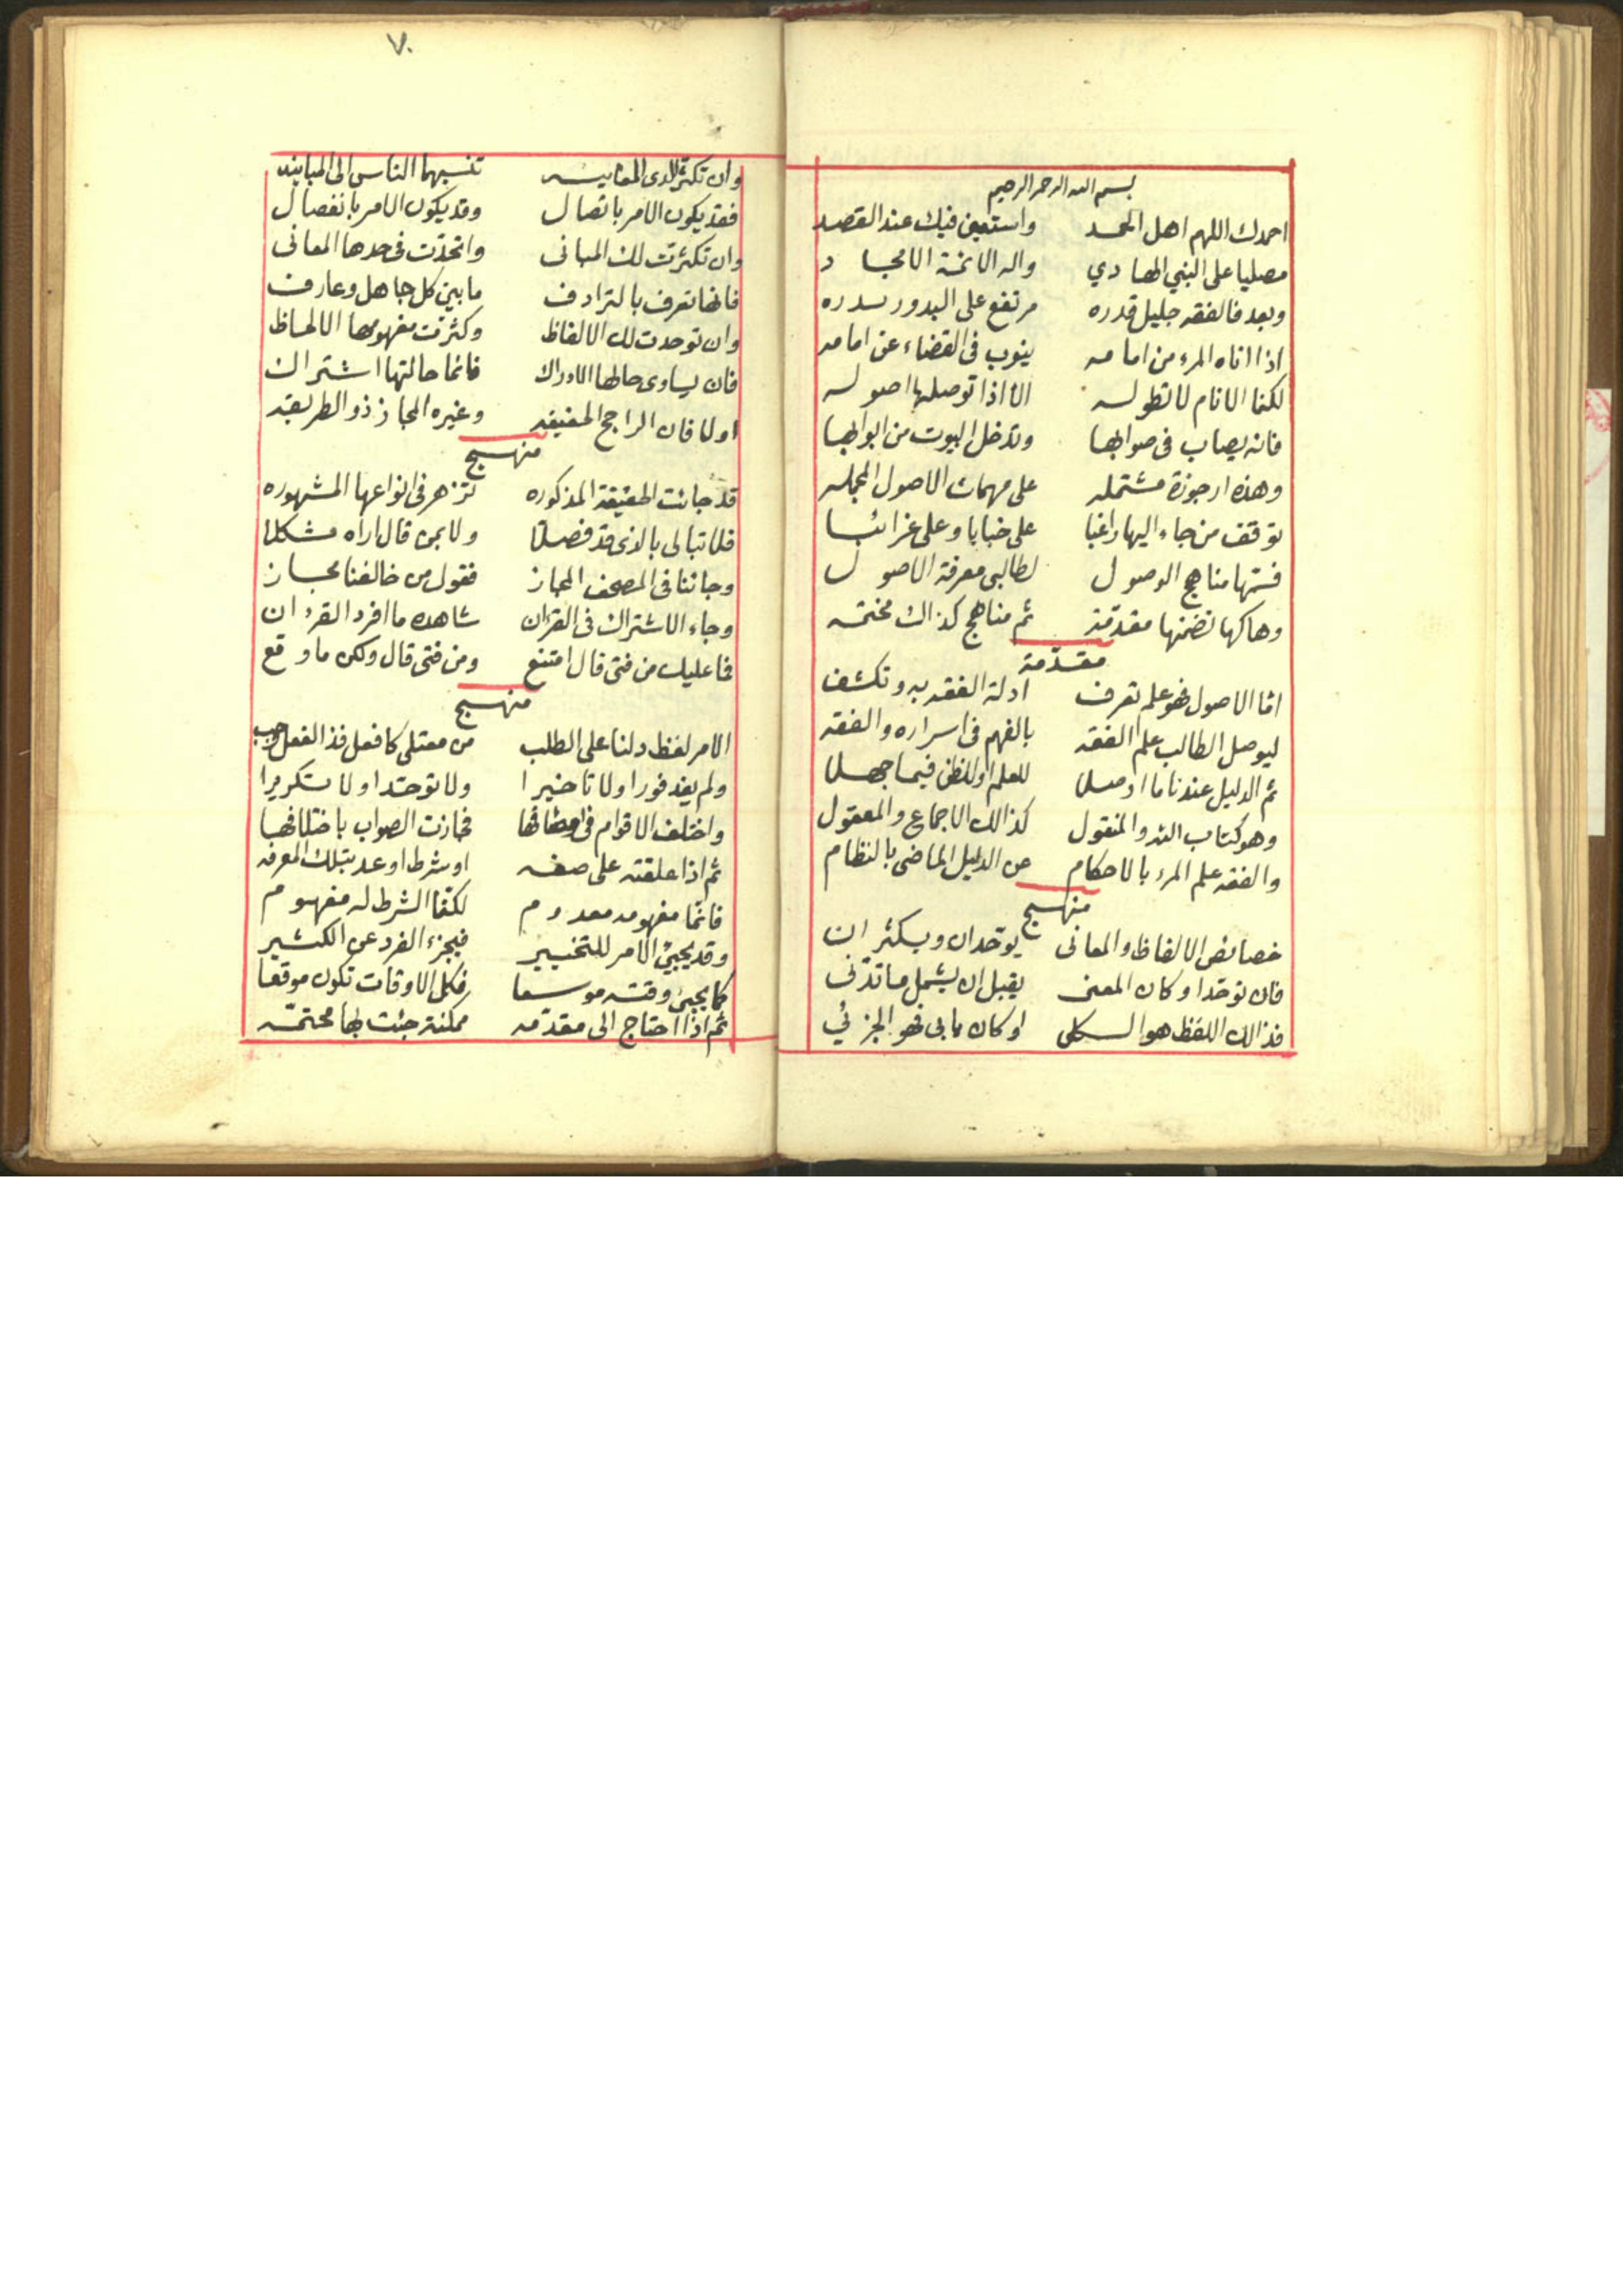 بسم الله الرحمن الرحيم
احمدك اللهم اهل الحمد واستعين فيك عند القصد
مصليا على النبي الهادي واله الائمة الامجاد
وبعد فالفقه جليل قدره مرتفع على البدور بدره
اذا اتاه المرء من امامه ينوب في القضاء عن امامه
لكنما الانام لا تطوله الا اذا توصلها اصوله
فانه يصاب في صوابها وتدخل البيوت من ابوابها
وهذه ارجوزة مشتمله على مهمات الاصول المجمله
توقف من جاء اليها راغبا على خبايا وعلى غرائبا
فسمها مناهج الوصول لطالبي معرفة الاصول
وهاكها تضمنها مقدمة ثم مناهج كذاك مختمه
مقدّمة
امّا الاصول فهو علم تعرف ادلة الفقه به وتكشف
ليوصل الطالب علم الفقه بالفهم في اسراره والفقه
ثم الدليل عندنا ما اوصلا للعلم او للظن فيما جهلا
وهو كتاب الله والمنقول كذالك الاجماع والمعقول
والفقه علم المرء بالاحكام عن الدليل الماضي بالنظام
منهج
خصائص الالفاظ والمعاني يوحّدان ويكثران
فان توحّدا وكان المعنى يقبل ان يشمل ما تدنى
فذالك اللفظ هو الكلي او كان يابى فهو الجزئي
٧٠
وان تكثر لدى المعاينه تنسبهما الناس الى المباينه
فقد يكون الامر باتصال وقد يكون الامر بانفصال
وان تكثرت لك المباني واتحدت في حدها المعاني
فانها تعرف بالترادف ما بين كل جاهل وعارف
وان توحدت لك الالفاظ وكثرت مفهومها الالحاظ
فان يساوى حالها الادراك فانما حالتها اشتراك
اولا فان الراجح الحقيقه وغيره المجاز ذو الطريقه
منهج
قد جائت الحقيقة المذكوره تزهر في انواعها المشهوره
فلا تبالي بالذي قد فصلا ولا بمن قال اراه مشكلا
وجائنا في المصحف المجاز فقول من خالفنا مجاز
وجاء الاشتراك في القران شاهده ما افرد القرءان
فما عليك من فتى قال امتنع ومن فتى قال ولكن ما وقع
منهج
الامر لفظ دلنا على الطلب من معتلي كافعل فذا الفعل وجب
ولم يفد فورا ولا تاخيرا ولا توحّدا ولا تكريرا
واختلف الاقوام في فحازت الصواب باختلافها
ثم اذا علقته على صفه او شرط او عد بتلك المعرفه
فانما مفهومه معدوم لكنما الشرط له مفهوم
وقد يجيئ الامر للتخيير فيجزء الفرد عن الكثير
كما يجيئ وقته موسعا فكل الاوقات تكون موقعا
ثم اذا احتاج الى مقدّمه ممكنة جئت بها محتمّه